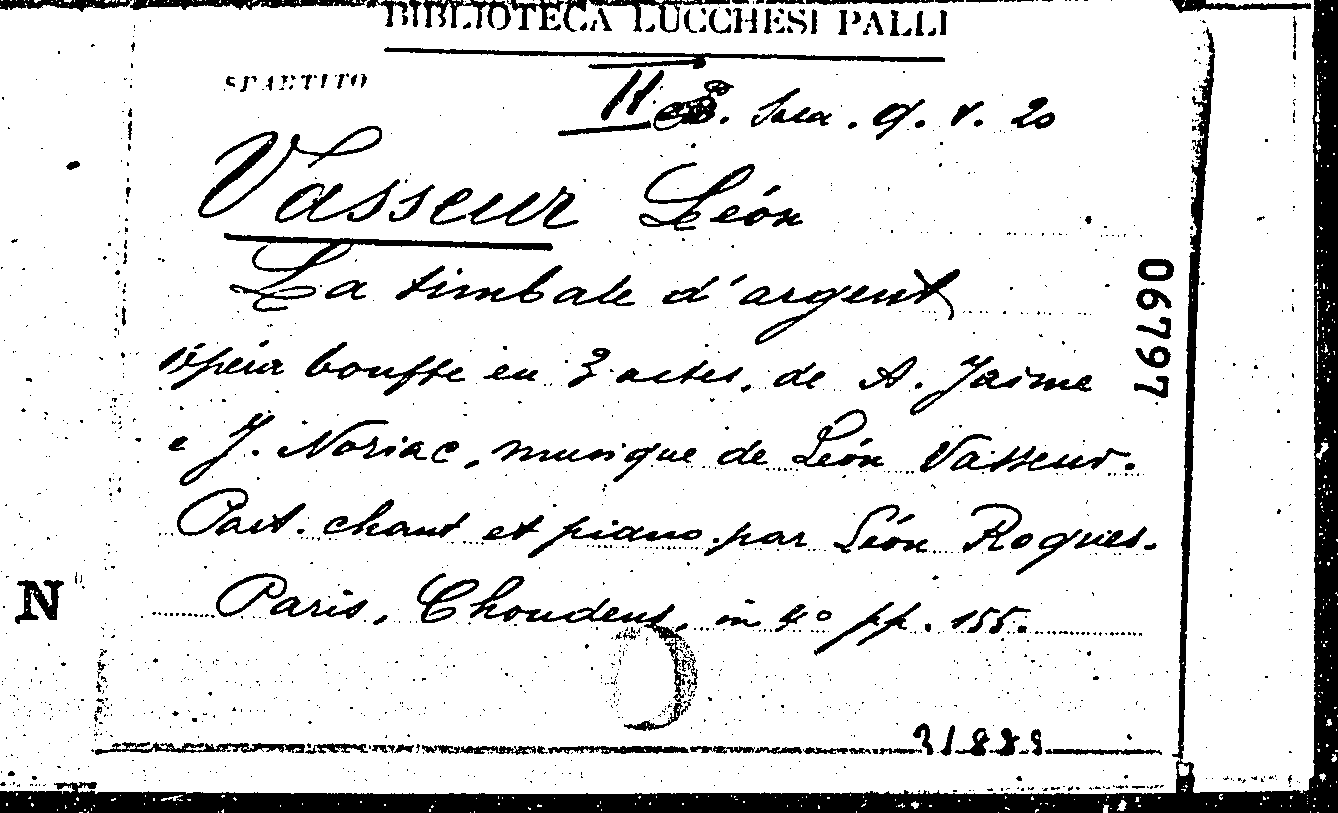 BIBLIOTECA LUCCHESI PALLI
SPARTITO
20
Vasseur Léon
La timbale d'argent
bouffe en 3 actes, de A. Jaime
e J. Noriac, musique de Léon Vasseur.
Part. chant et piano par Léon Roques.
Paris, Choudens, in 4° pp. 155.
06797
N
31889